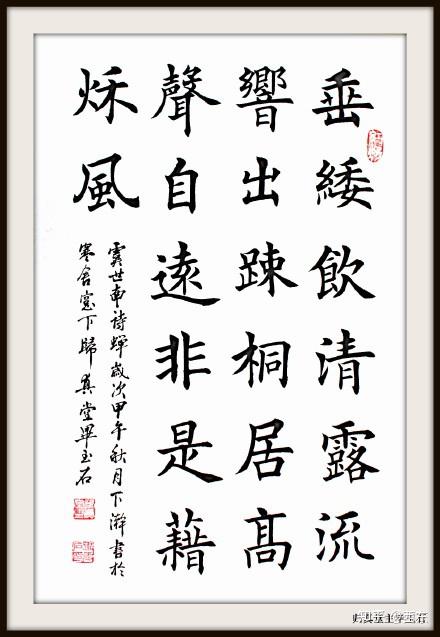 垂緌飲清露流
響出踈桐居髙
聲自遠非是藉
秋風
虞世南詩蟬歲次甲午秋月下澣書於
寒舍窓下歸真堂畢玉石
归真堂主毕玉石